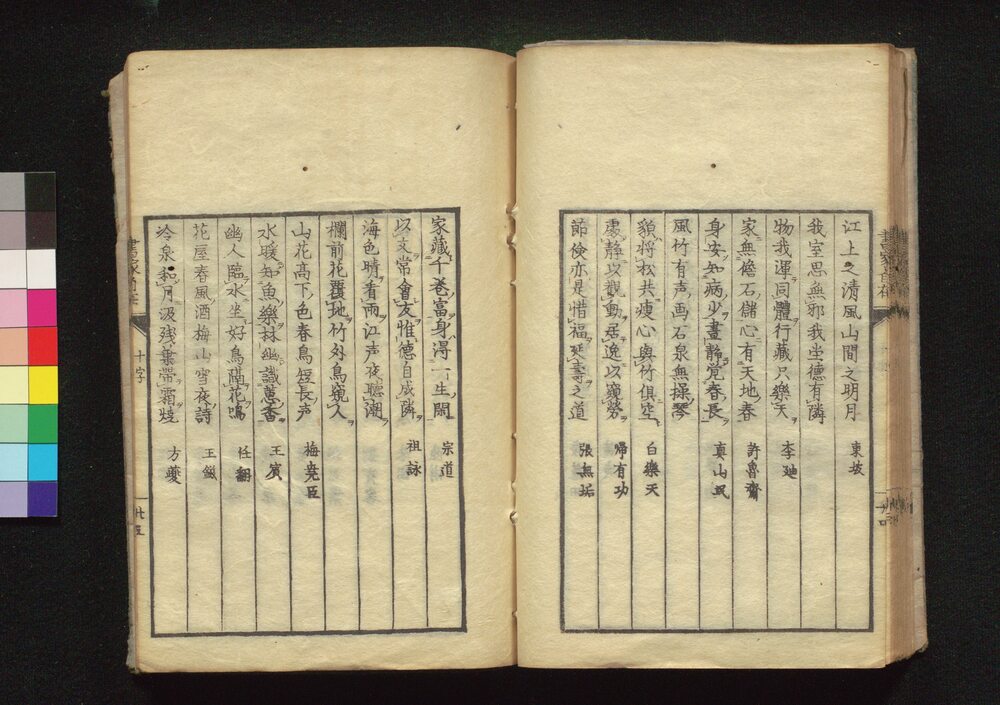 江上之清風山間之明月 東坡
我室思無邪我坐德有隣
物我渾同體行藏只樂天 李廸
家無儋石儲心有天地春 許魯齋
身安知病少晝静覚春長 真山民
風竹有声画石泉無操琴
貌将松共瘦心與竹俱空 白樂天
處静以觀動居逸以窺勞 帰有功
節儉亦是惜福延壽之道 張無垢
家藏千卷富身淂一生閑 宗道
以文常會友惟德自成隣 祖詠
海色晴看雨江声夜聽潮
欄前花覆地竹外鳥窺人
山花髙下色春鳥短長声 梅堯臣
水暖知魚樂林幽識蕙香 王賔
幽人臨水坐好鳥隔花鳴 任翻
花屋春風酒梅山雪夜詩 王鎡
冷泉和月汲残葉帯霜燒 方夔
十字
廿五